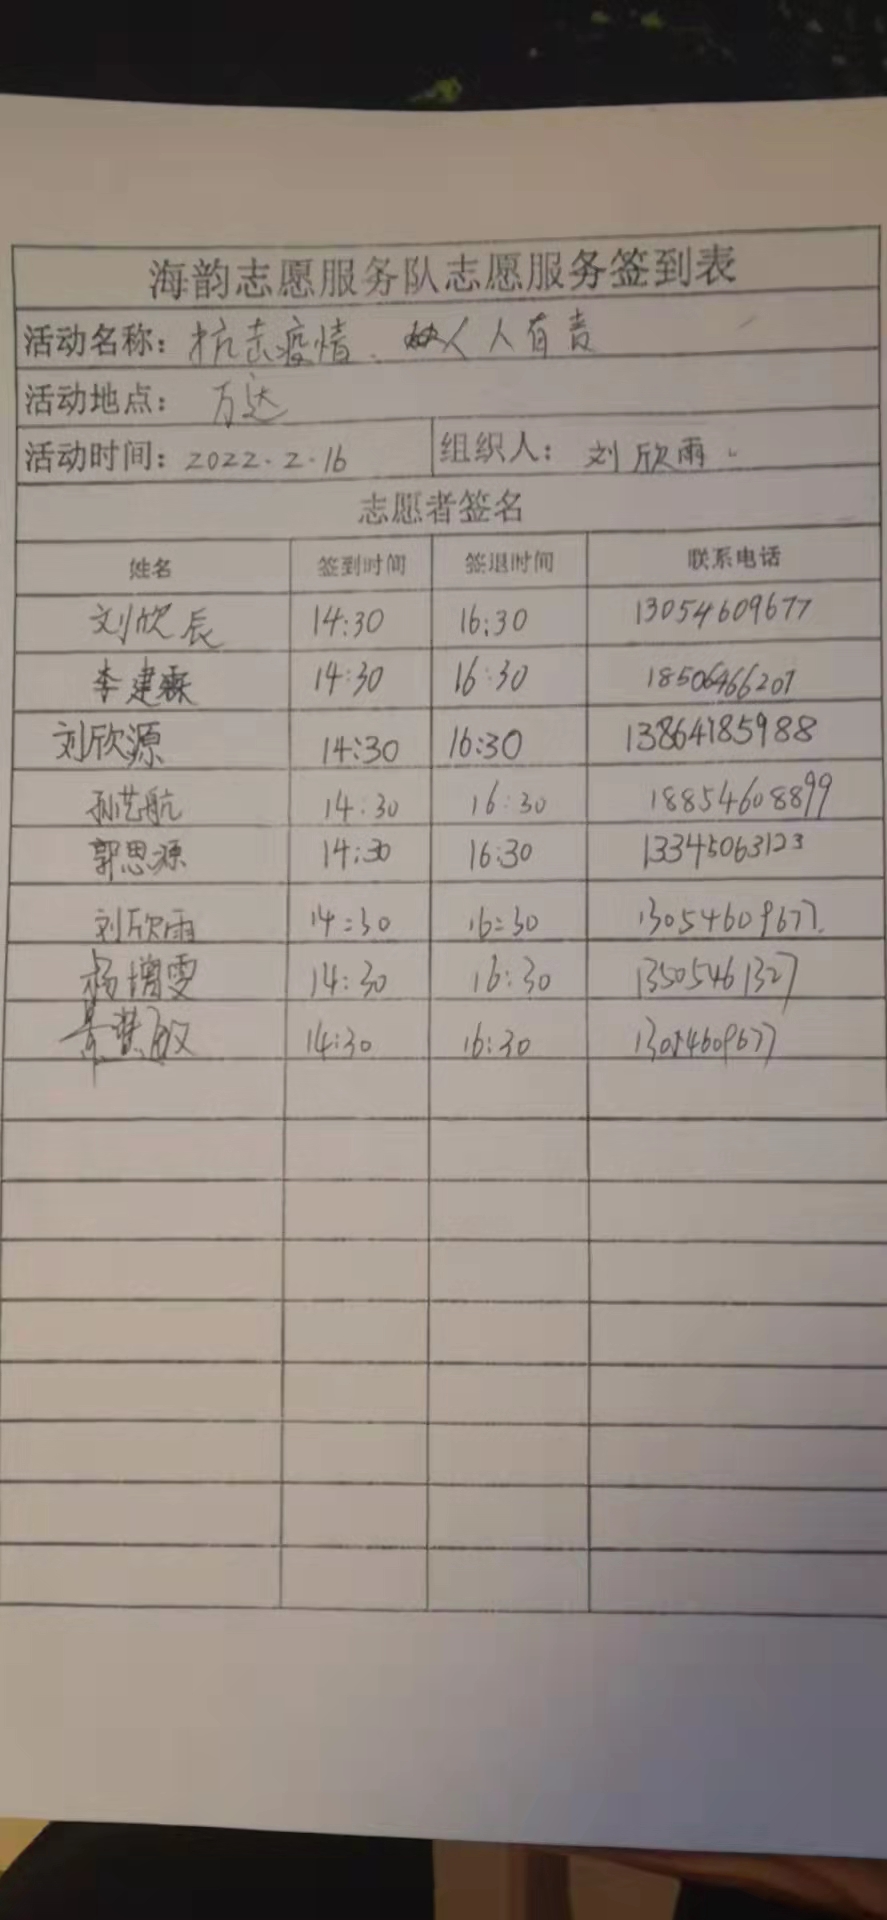 海韵志愿服务队志愿服务签到表
活动名称：抗击疫情、人人有责
活动地点：万达
活动时间：2022.2.16 组织人：刘欣雨
志愿者签名
姓名 签到时间 签退时间 联系电话
刘欣辰 14:30 16:30 13054609677
李建霖 14:30 16:30 18506466207
刘欣源 14:30 16:30 13864185988
孙艺航 14:30 16:30 18854608899
郭思源 14:30 16:30 13345063123
刘欣雨 14:30 16:30 13054609677
杨增雯 14:30 16:30 13505461327
14:30 16:30